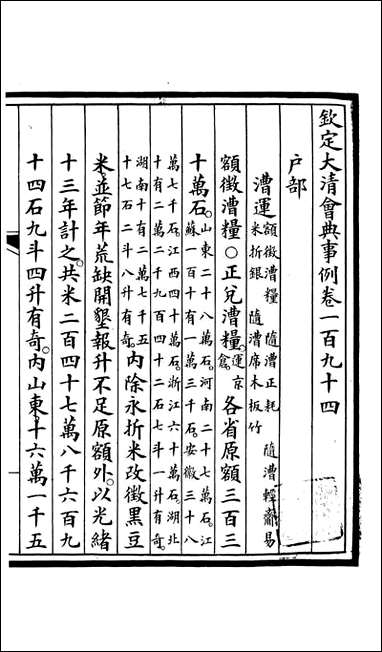 欽定大清會典事例卷一百九十四
户部
漕運
額徵漕糧 隨漕正耗 隨漕輕齎易
米折銀 隨漕席木板竹
額徵漕糧○正兌漕糧。運京
倉。各省原額三百三
十萬石。山東二十八萬石。河南二十七萬石。江
蘇一百十有一萬三千石。安徽三十八
萬七千石。江西四十萬石。浙江六十萬石。湖北
十有二萬二千九百四十二石七斗一升有奇。
湖南十有二萬七千五
十七石二斗八升有奇。內除永折米改徵黑豆
米並節年荒缺開墾報升不足原額外。以光緒
十三年計之。共米二百四十七萬八千六百九
十四石九斗四升有奇。內山東。十六萬一千五